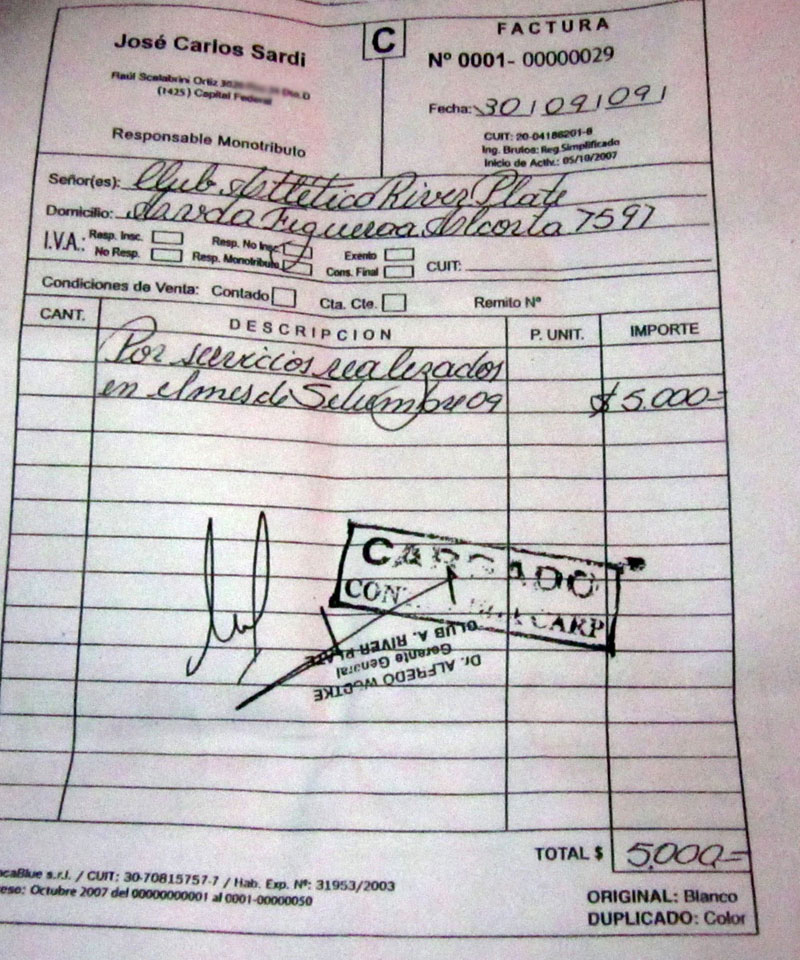 José Carlos Sardi
Raúl Scalabrini Ortiz
(1425) Capital Federal
Responsable Monotributo
C
FACTURA
Nº 0001- 00000029
Fecha: 30/09/09
CUIT: 20-04186201-8
Ing. Brutos: Reg. Simplificado
Inicio de Activ.: 05/10/2007
Señor(es): Club Atlético River Plate
Domicilio: Figueroa Alcorta 7597
I.V.A.: Resp. Insc. Resp. No Insc. Exento
No Resp. Resp. Monotributo Cons. Final CUIT:
Condiciones de Venta: Contado Cta. Cte. Remito Nº
CANT. DESCRIPCION P. UNIT. IMPORTE
Por servicios realizados
en el mes de Setiembre 09 $ 5.000=
CARGADO
CARP
CLUB A. RIVER PLATE
Gerente General
Dr. ALFREDO
TOTAL $ 5.000=
s.r.l. / CUIT: 30-70815757-7 / Hab. Exp. Nº: 31953/2003
Octubre 2007 del 00000000001 al 0001-00000050
ORIGINAL: Blanco
DUPLICADO: Color